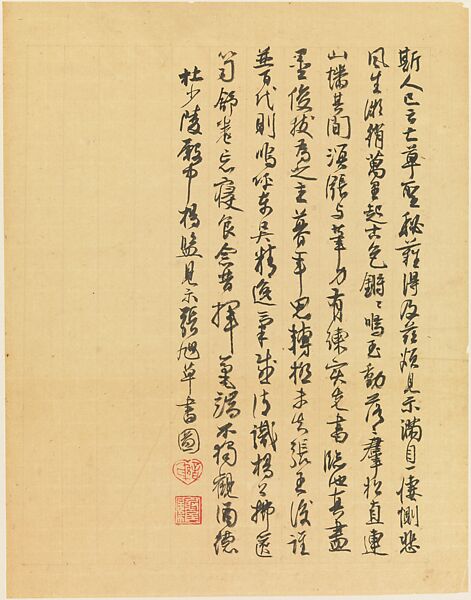 斯人已云亡草聖秘難得及茲煩見示滿目一悽惻悲
風生微綃萬里起古色鏘〻鳴玉動落〻羣松直連
山蟠其間溟漲與筆力有練實先書臨池真盡
墨俊拔為之主暮年思轉極未知張王後誰
並百代則嗚呼東吳精逸氣感清識楊公拂篋
笥舒卷忘寢食念昔揮毫端不獨觀酒德
杜少陵殿中楊監見示張旭草書圖